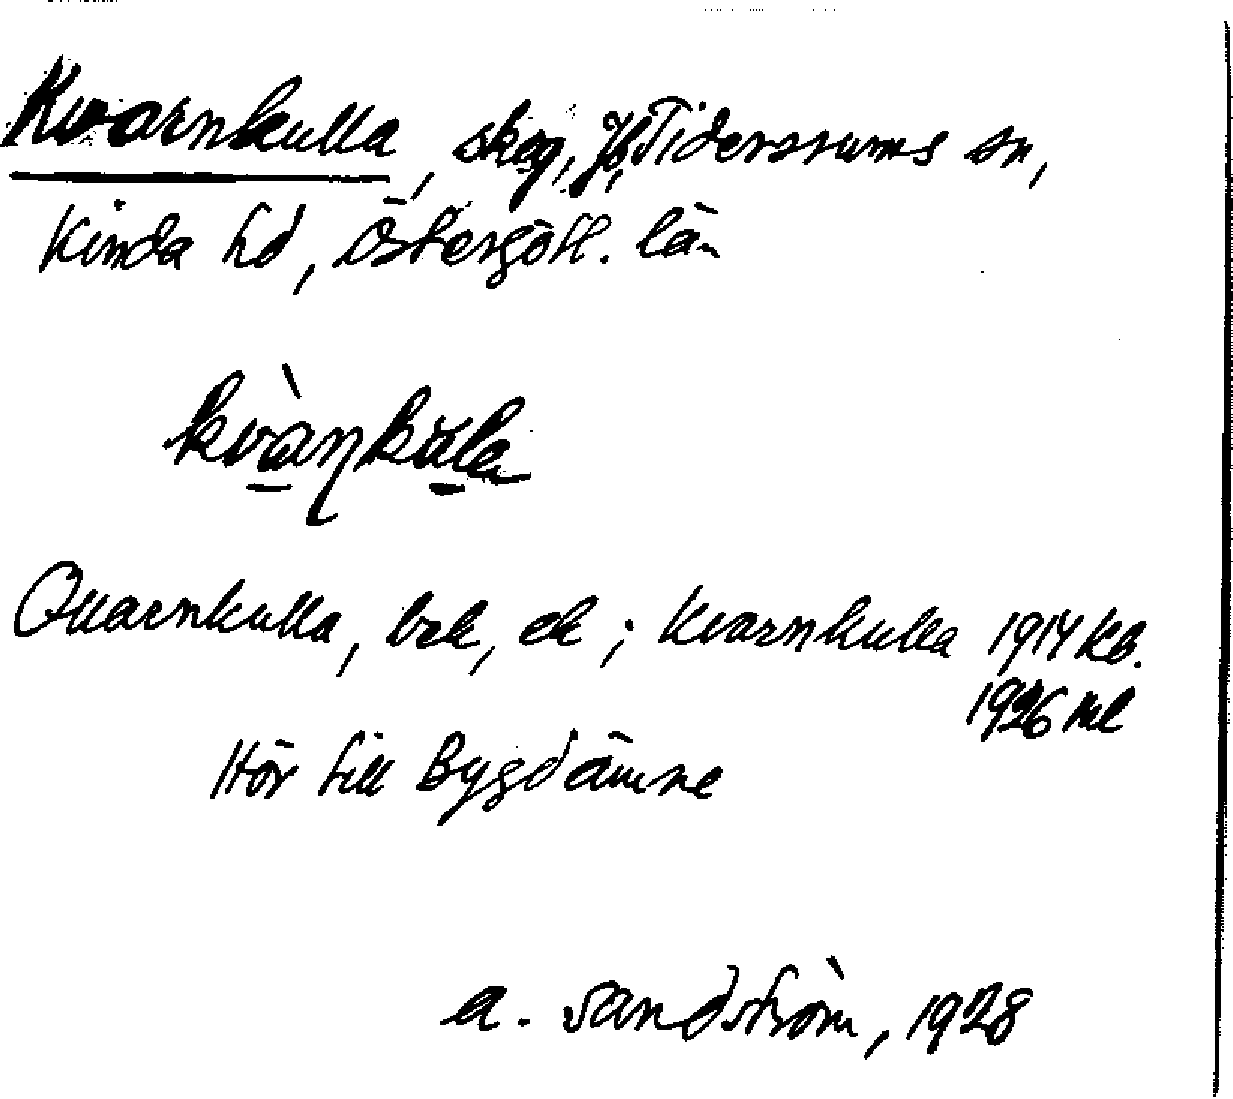 Kvarnkulla, skog, Tidersrums sn,
Kinda hd, Östergötl. län
kvànkula
Qvarnkulla, brk, ek; Kvarnkulla 1914 Kb.
1926 Ml
Hör till Bygdämne
A. Sandström, 1928